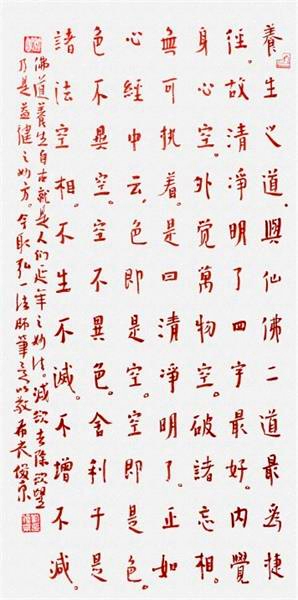 養生之道。與仙佛二道最為捷
徑。故清淨明了四字最好。內覺
身心空。外觉萬物空。破諸忘相。
無可執着。是曰清淨明了。正如
心經中云。色即是空。空即是色。
色不異空。空不異色。舍利子是
諸法空相。不生不滅。不增不減。
佛道養生自古就是人们延年之妙法。減欲去除欲望
乃是益健之妙方。今取弘一法師筆意以敬